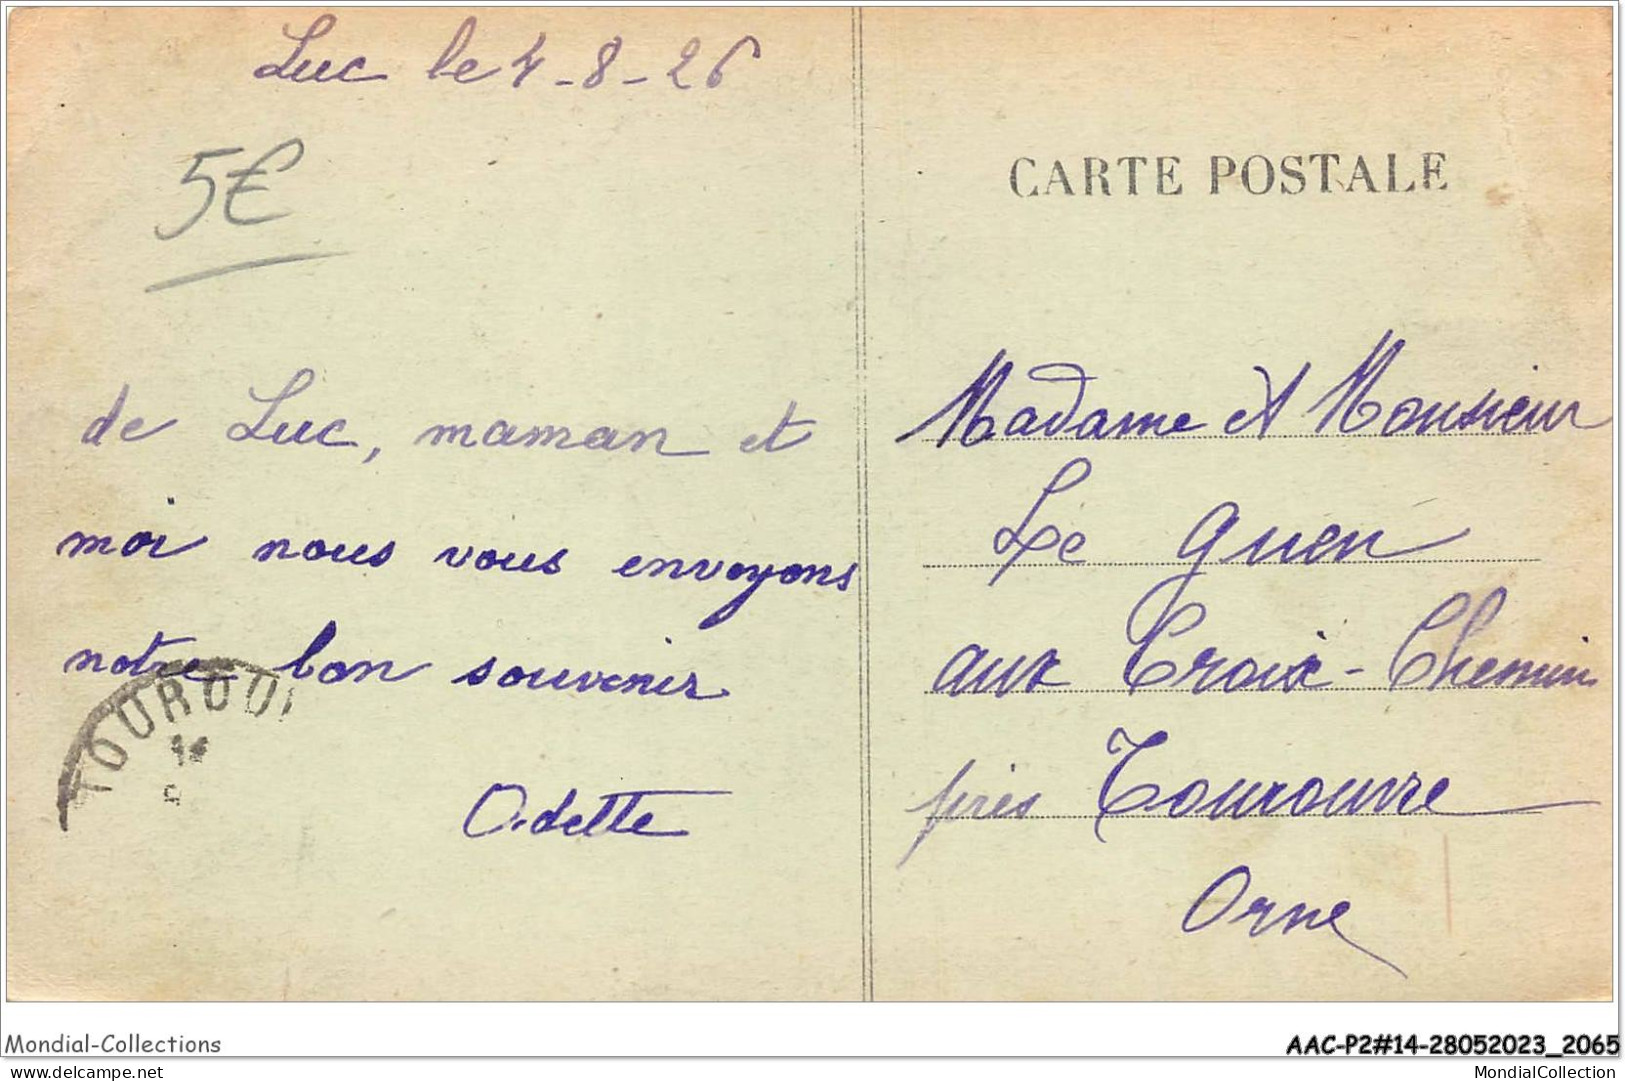 Luc le 4-8-26
5€
de Luc, maman et
moi nous vous envoyons
notre bon souvenir
Odette
TOUROU
CARTE POSTALE
Madame et Monsieur
Le guen
aux Croix-Chemins
près Tourouvre
Orne
Mondial-Collections
AAC-P2#14-28052023_2065
delcampe.net
MondialCollection